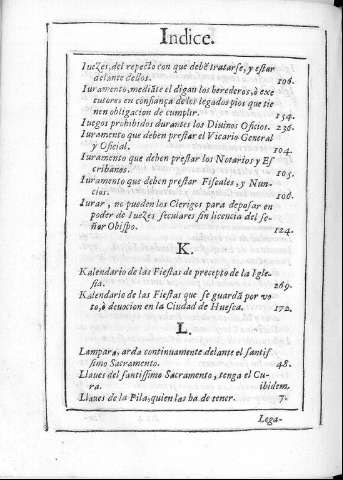 Indice.
Iueʒes, del respecto con que debẽ tratarse, y estar
delante dellos. 198.
Iuramento, mediãte el digan los herederos, ò exe
cutores en confiança de los legados pios que tie
nen obligacion de cumplir. 154.
Iuegos prohibidos durantes los Divinos Oficios. 236.
Iuramento que deben prestar el Vicario General
y Oficial. 104.
Iuramento que deben prestar los Notarios y Es
cribanos. 105.
Iuramento que deben prestar Fiscales, y Nun-
cios. 106.
Iurar, no pueden los Clerigos para deposar en
poder de Iueʒes seculares sin licencia del se-
ñor Obispo. 124.
K.
Kalendario de las Fiestas de precepto de la Igle-
sia. 269.
Kalendario de las Fiestas que se guardã por vo
to, ò deuocion en la Ciudad de Huesca. 172.
L.
Lampara, arda continuamente delante el santis
simo Sacramento. 48.
Llaues del santissimo Sacramento, tenga el Cu-
ra. ibidem.
Llaues de la Pila, quien las ha de tener. 7.
Lega-